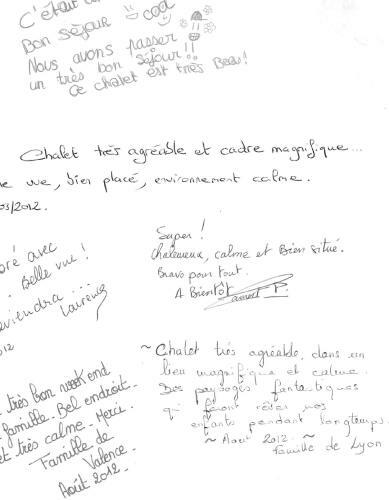 C'était
cool
Bon séjour
Nous avons passer
un très bon séjour!!
Ce chalet est très Beau!
Chalet très agréable et cadre magnifique...
vue, bien placé, environnement calme.
03/2012.
Super!
Chaleureux, calme et Bien situé.
Bravo pour tout.
A Bientôt
avec
Belle vue!
eviendra ....
Laurence
012
très bon week end
famille. Bel endroit.
et très calme. Merci.
Famille de
Valence
Août 2012.
~ Chalet très agréable, dans un
lieu magnifique et calme.
Des paysages fantastiques
qui feront rêver nos
enfants pendant longtemps.
~ Aout 2012. ~
famille de Lyon